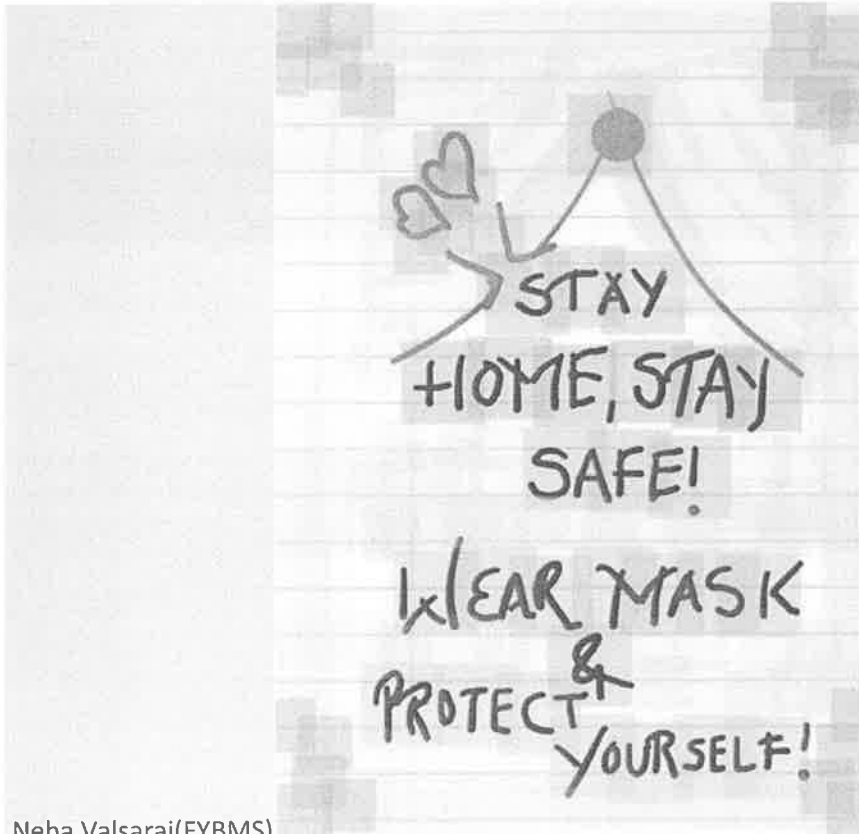 STAY
HOME, STAY
SAFE!
WEAR MASK
&
PROTECT
YOURSELF!
Neha Valsaraj(FYBMS)